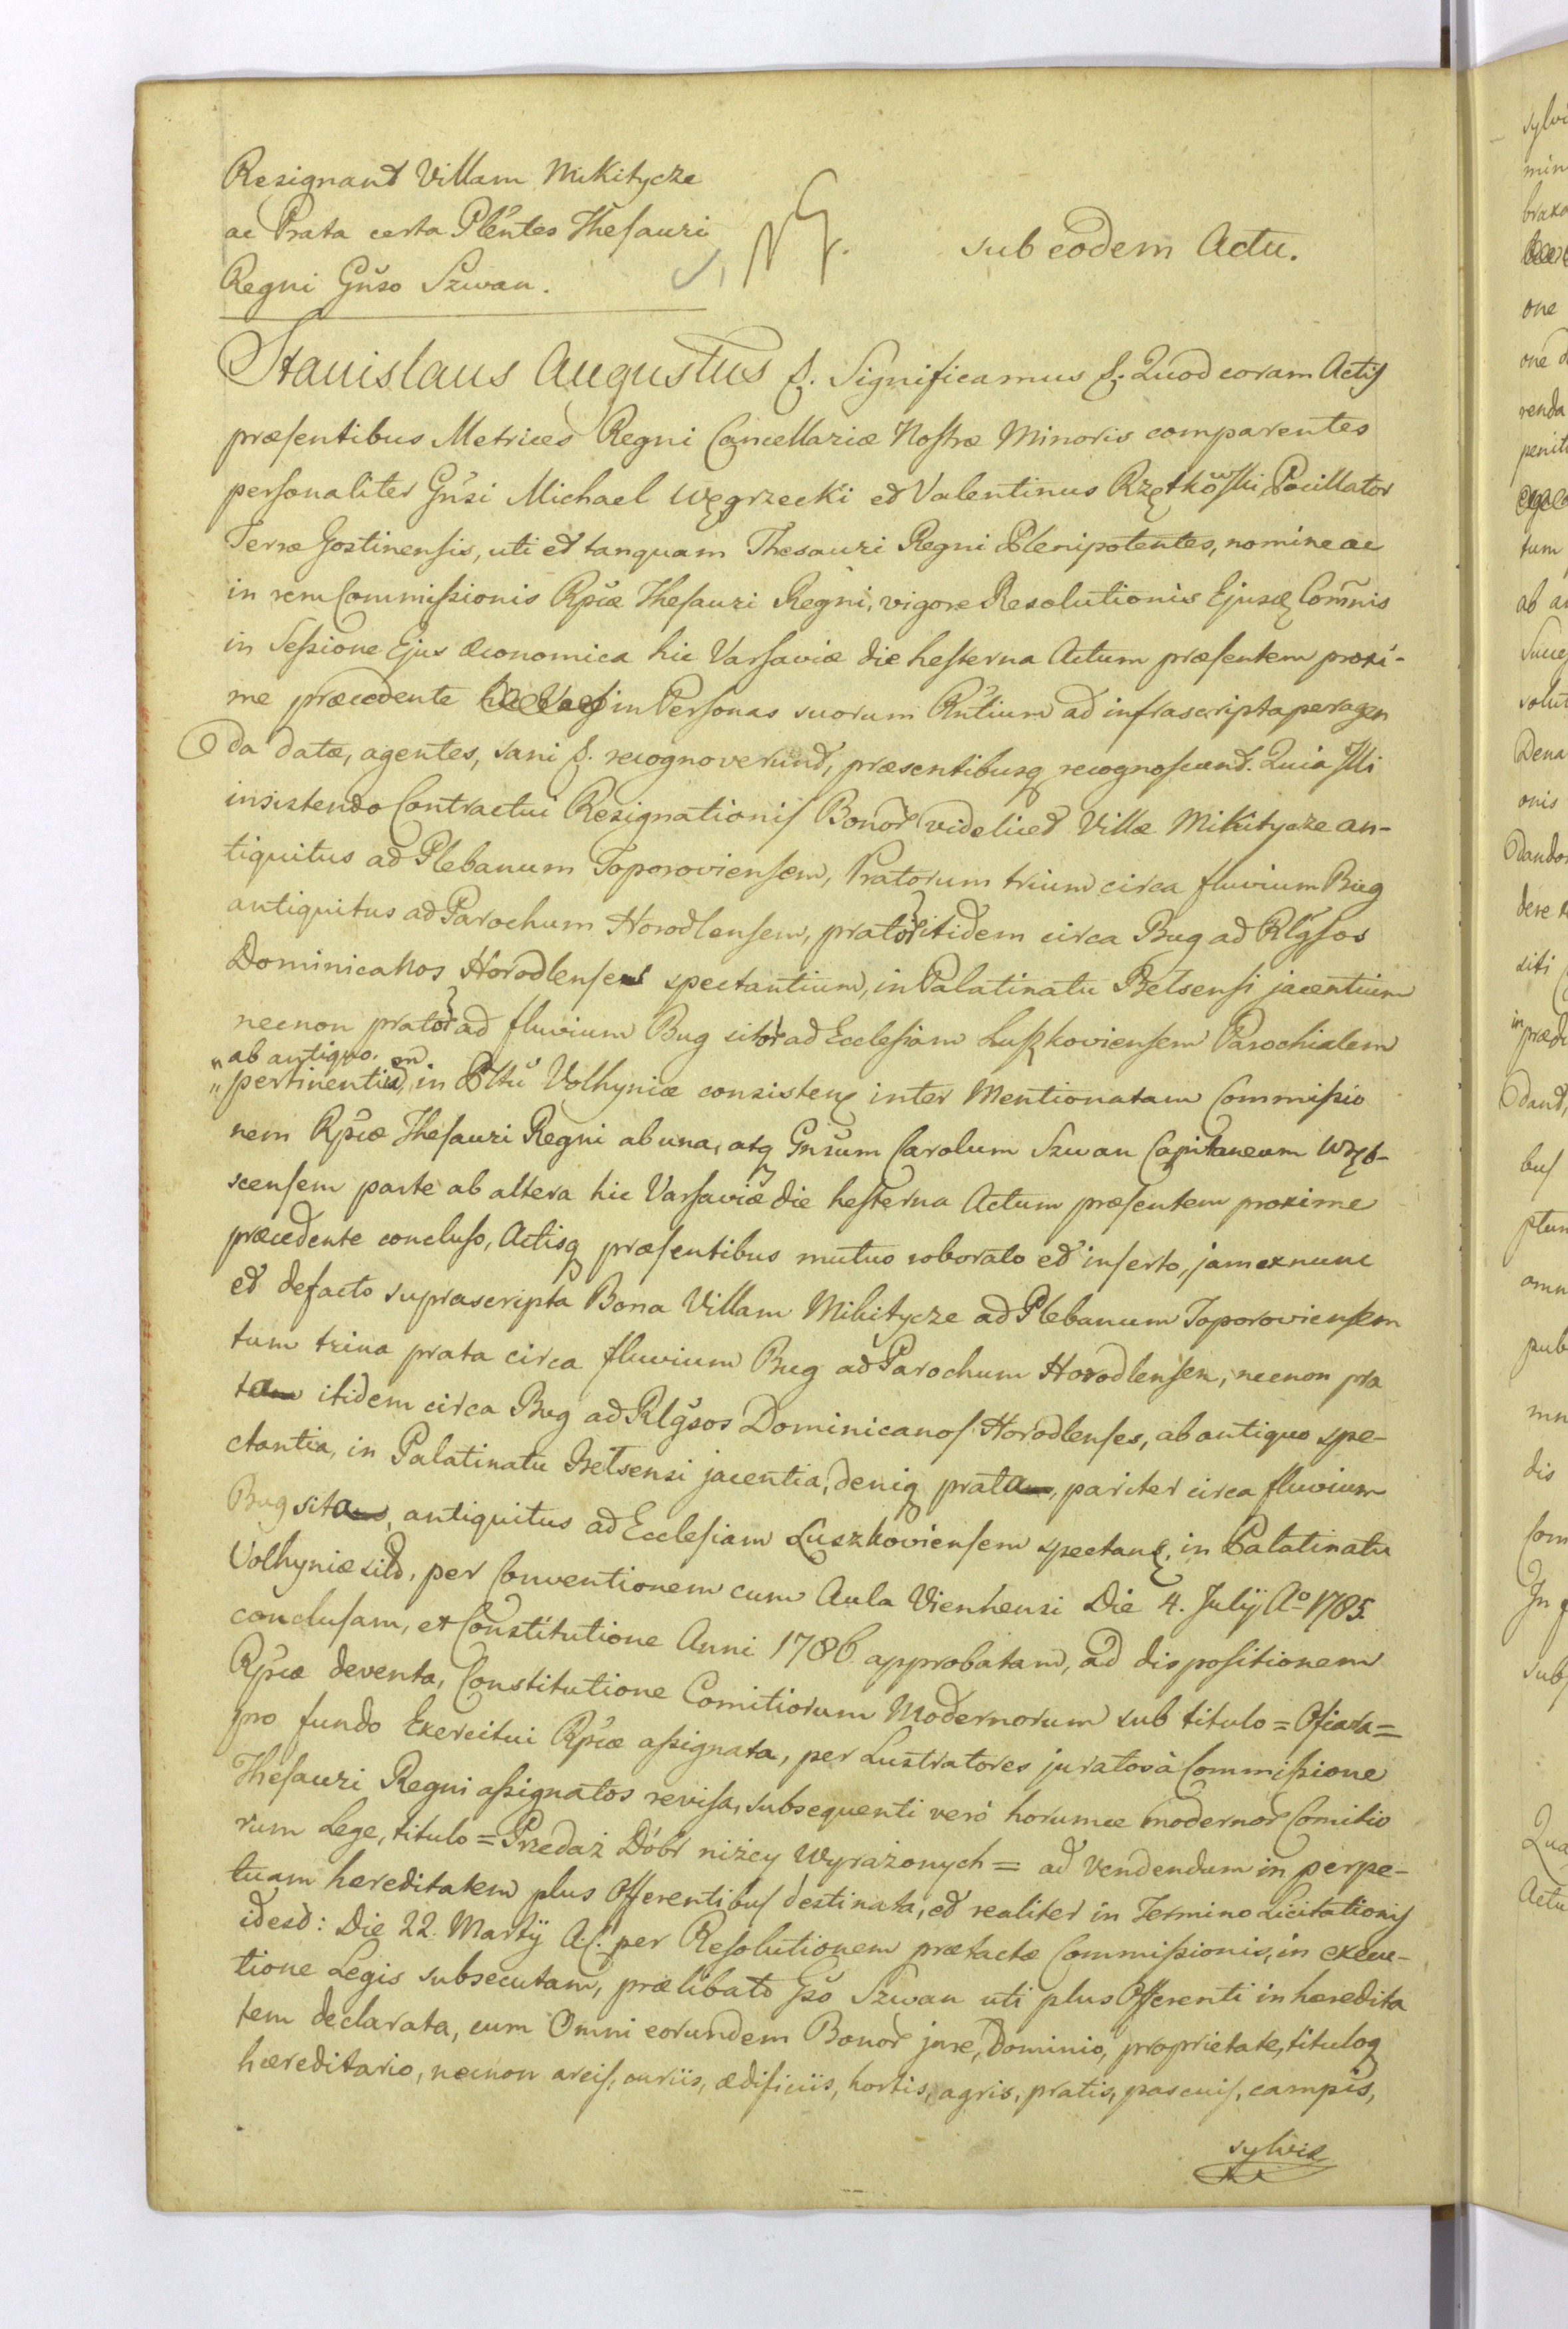 Resignant Villam Mikitycze
ac Prata certa Plentes Thesauri
Regni Gnso Szwan.
sub eodem Actu.
Stanislaus Augustus &. Significamus &. Quod coram Actis
præsentibus Metrices Regni Cancellariæ Nostræ Minoris comparentes
personaliter Gnsi Michael Węgrzecki et Valentinus Rzętkowski Pocillator
Terræ Gostinensis, uti et tanquam Thesauri Regni Plenipotentes, nomine ac
in rem Commissionis Rpcæ Thesauri Regni, vigore Resolutionis Ejusq Comnis
in Sessione Ejus Œconomica hic Varsaviæ die hesterna Actum præsentem proxi-
me præcedente in Personas suorum Rntium ad infrascripta peragen
da datæ, agentes, sani &. recognoverunt, præsentibusq recognoscunt. Quia Illi
insistendo Contractui Resignationis Bonor videlicet Villæ Mikitycze an-
tiquitus ad Plebanum Toporoviensem, Pratorum trium circa fluvium Bug
antiquitus ad Parochum Horodlensem, prator itidem circa Bug ad Rlgsos
Dominicanos Horodlenses spectantium, in Palatinatu Belsensi jacentium
necnon prator ad fluvium Bug sitor ad Ecclesiam Luszkoviensem Parochialem
"ab antiquo.
"pertinentium, in Pltu Volhyniæ consisten inter Mentionatam Commissio
nem Rpcæ Thesauri Regni ab una, atq Gnsum Carolum Szwan Capitaneum Wąb-
scensem parte ab altera hic Varsaviæ die hesterna Actum præsentem proxime
præcedente concluso, Actisq præsentibus mutuo roborato et inserto, jam ex nunc
et defacto suprascripta Bona Villam Mikitycze ad Plebanum Toporoviensem
tum trina prata circa fluvium Bug ad Parochum Horodlensem, necnon pra
ta itidem circa Bug ad Rlgsos Dominicanos Horodlenses, ab antiquo spe-
ctantia, in Palatinatu Belsensi jacentia, deniq prata, pariter circa fluvium
Bug sita, antiquitus ad Ecclesiam Luszkoviensem spectan, in Palatinatu
Volhyniæ sit, per Conventionem cum Aula Viennensi Die 4. Julij Ao 1785.
conclusam, et Constitutione Anni 1786 approbatam, ad dispositionem
Rpcæ deventa, Constitutione Comitiorum Modernorum sub titulo = Ofiara =
pro fundo Exercitui Rpcæ assignata, per Lustratores juratos à Commissione
Thesauri Regni assignatos revisa, subsequenti verò horumce modernor Comitio
rum Lege, titulo = Przedaż Dóbr niżey wyrażonych = ad vendendum in perpe-
tuam hæreditatem plus Offerentibus destinata, et realiter in Termino Licitationis
idest: Die 22. Martij A.C. per Resolutionem prætactæ Commissionis, in execu-
tione Legis subsecutam, prælibato Gso Szwan uti plus Offerenti in hæredita
tem declarata, cum Omni eorundem Bonor jure, Dominio, proprietate, tituloq
hæreditario, necnon areis, curiis, ædificiis, hortis, agris, pratis, pascuis, campis,
sylvis